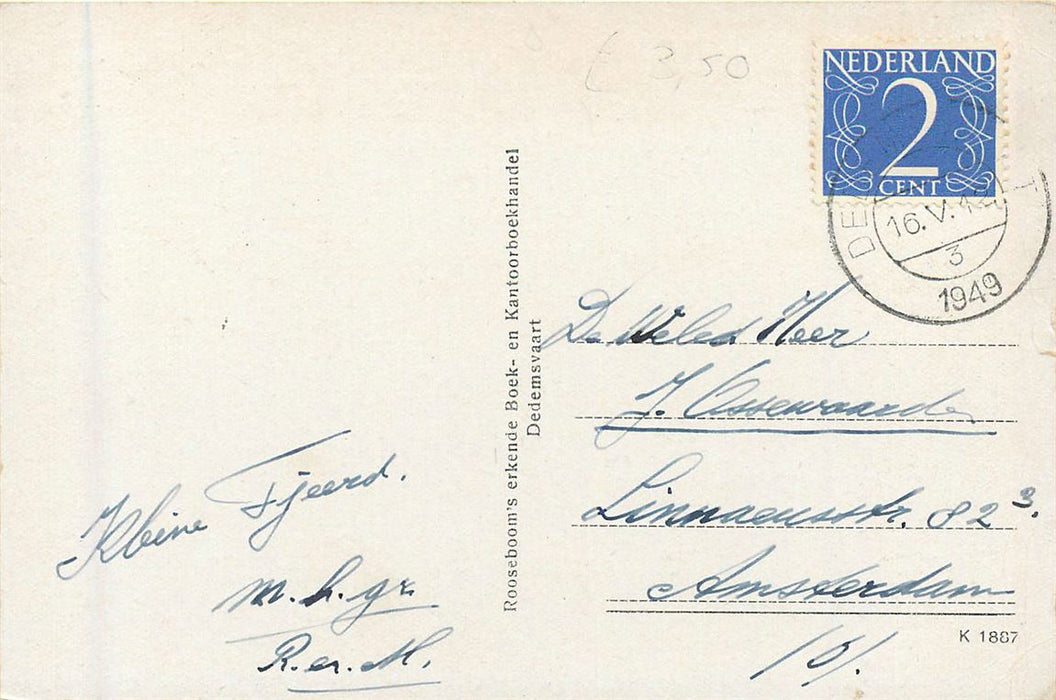 € 2,50
NEDERLAND
2
CENT
16.V.12
3
1949
Rooseboom's erkende Boek- en Kantoorboekhandel
Dedemsvaart
De Weled Heer
J. Ossewaarde
Linnaeusstr. 82 3.
Amsterdam
/O/.
K 1887
Kleine Tjeerd.
m.h.gr.
R. en M.